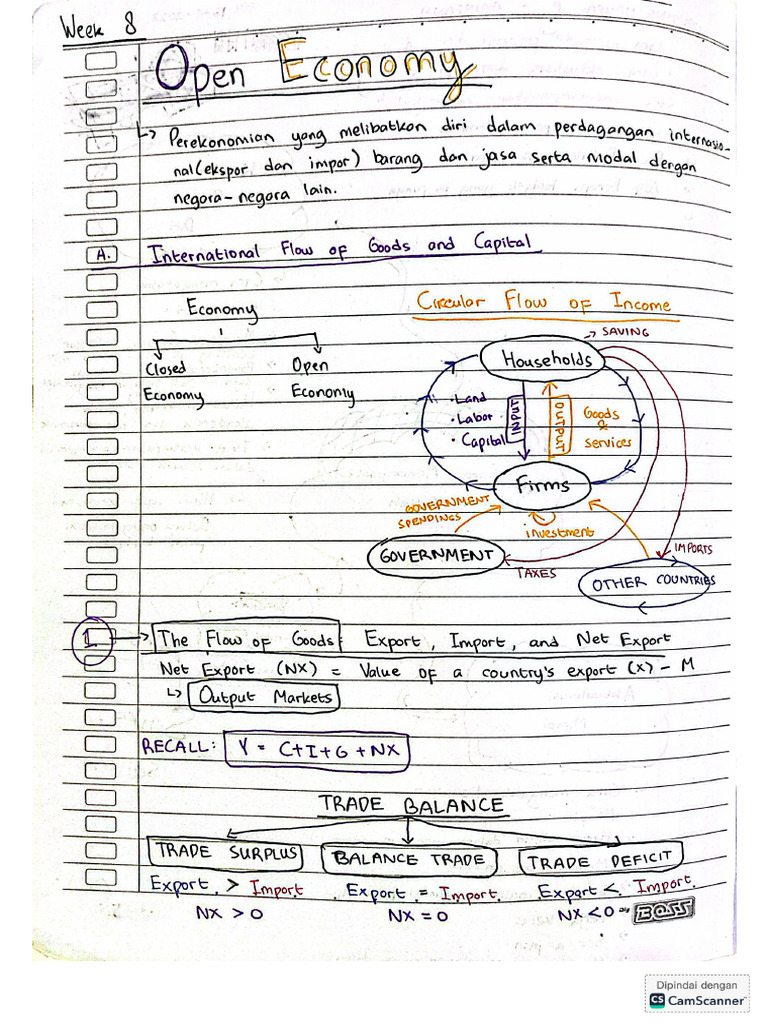 Week 8
Open Economy
↳ Perekonomian yang melibatkan diri dalam perdagangan internasio-
nal (ekspor dan impor) barang dan jasa serta modal dengan
negara-negara lain.
A. International Flow of Goods and Capital
Economy
Closed
Economy
Open
Economy
Circular Flow of Income
→ SAVING
Households
• Land
• Labor
• Capital
INPUT
OUTPUT
Goods
&
services
Firms
GOVERNMENT
SPENDINGS
investment
GOVERNMENT
TAXES
IMPORTS
OTHER COUNTRIES
1 → The Flow of Goods: Export, Import, and Net Export
Net Export (NX) = Value of a country's export (X) - M
↳ Output Markets
RECALL: Y = C+I+G+NX
TRADE BALANCE
TRADE SURPLUS
Export > Import
NX > 0
BALANCE TRADE
Export = Import
NX = 0
TRADE DEFICIT
Export < Import
NX < 0
BOSS
Dipindai dengan
CS CamScanner